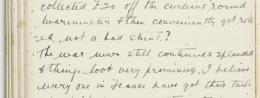 collected £20 off the curbing round
Warminster & then conveniently got rob
ed, not a bad stunt.?
The war news still continues splendid
& things look very promising, I believe
every one in France have got their tails